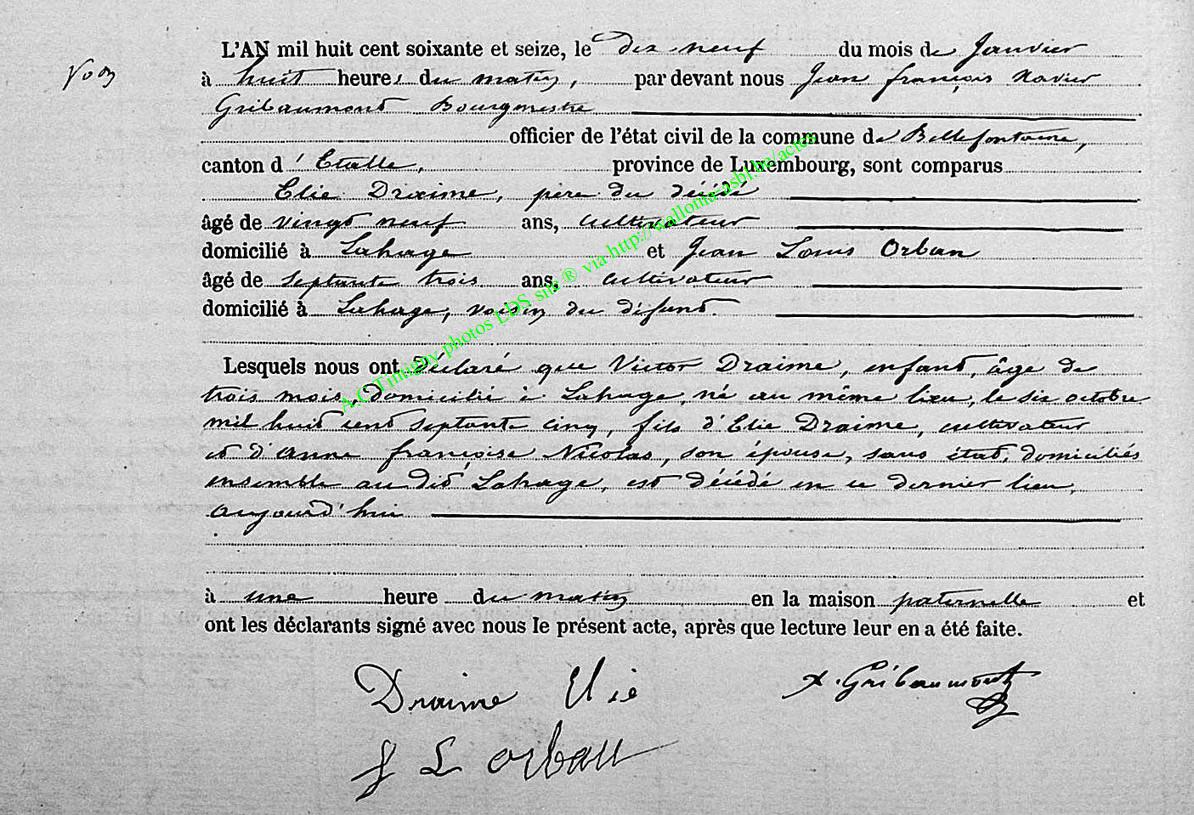 L'AN mil huit cent soixante et seize, le dix neuf du mois de Janvier
à huit heures du matin, par devant nous Jean françois Xavier
Gribaumont Bourgmestre
officier de l'état civil de la commune de Bellefontaine,
canton d'Etalle, province de Luxembourg, sont comparus
Elie Draime, père du décédé
âgé de vingt neuf ans, cultivateur
domicilié à Lahage et Jean Louis Orban
âgé de septante trois ans, cultivateur
domicilié à Lahage, voisin du défunt.
Lesquels nous ont déclaré que Victor Draime, enfant, âge de
trois mois, domicilié à Lahage, né au même lieu, le six octobre
mil huit cent septante cinq, fils d'Elie Draime, cultivateur
et d'Anne françoise Nicolas, son épouse, sans état, domiciliés
ensemble au dit Lahage, est décédé en ce dernier lieu,
aujourd'hui
à une heure du matin en la maison paternelle et
ont les déclarants signé avec nous le présent acte, après que lecture leur en a été faite.
Draime Elie
X. Gribaumont
J L orban
A.C. Tintigny photos LDS sur ® via http://wallonia-asbl.be/actes